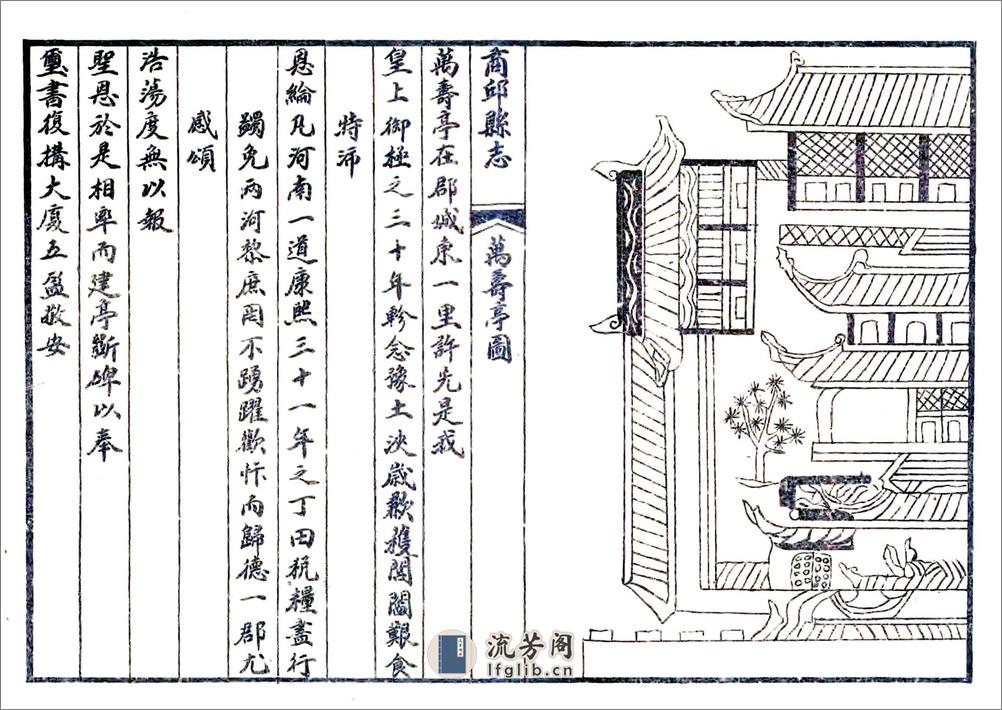 商邱縣志
萬壽亭圖
萬壽亭在郡城東一里許先是我
皇上御極之三十年軫念豫土浹歲歉穫閭閻艱食
特沛
恩綸凡河南一道康熙三十一年之丁田稅糧盡行
蠲免兩河黎庶罔不踴躍歡忭而歸德一郡尤
感頌
浩蕩度無以報
聖恩於是相率而建亭斲碑以奉
璽書復搆大廈五盈敬安
流芳阁
lfglib.cn